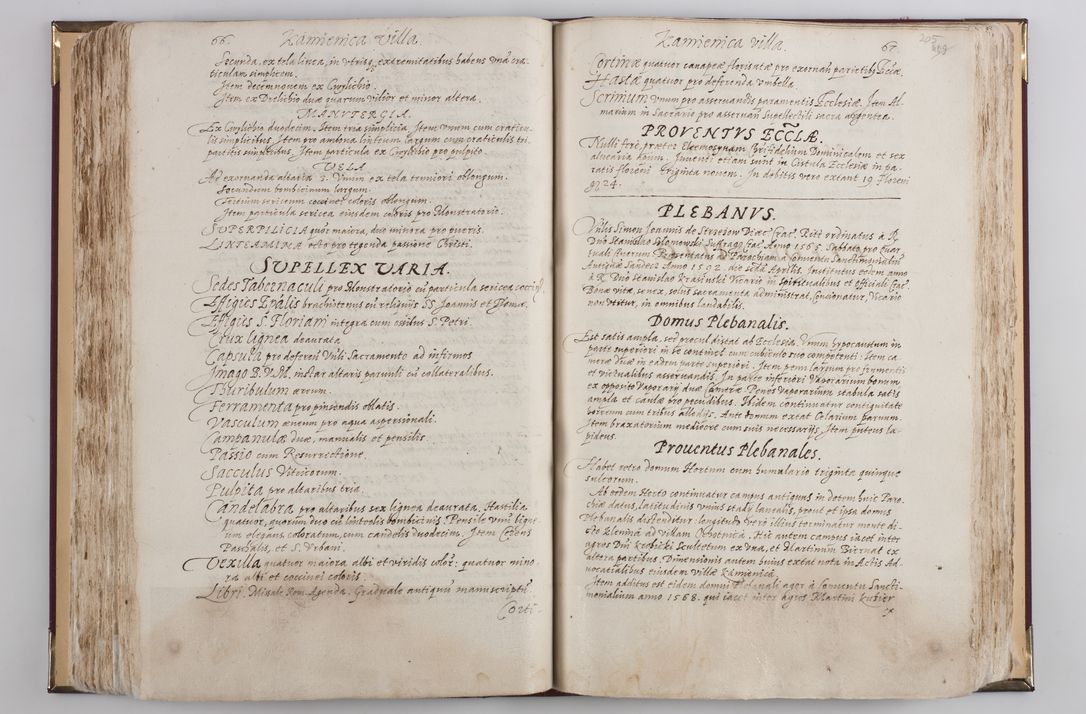 66. Kamienica villa.
Secunda, ex tela linea, in utrisq. extremitatibus habens una cra-
ticulam simplicem.
Item decem novem ex Coxlichio.
Item ex Drelichio duæ quarum vilior et minor altera.
MANUTERGIA.
simplicibus. Item pro ambona linteum largum cum craticulis tri-
partitis simplicibus. Item particula ex pro pulpito.
VELA
Ad exornanda altaria 3. Unum ex tela tenuiori oblongum.
Secundum bombicinum largum.
Tertium sericeum coccinei coloris oblongum.
Item particula sericea eiusdem coloris pro Monstratorio.
SUPERPILICIA quatuor maiora, duo minora pro pueris.
LINTEAMINA octo pro tegenda passione Christi.
SUPELLEX VARIA.
Sedes Tabernaculi pro Monstratorio cū particula sericea
Effigies Ovalis brachiotenus cū religiijs SS. Joannis et Thomæ.
Effigies S. Floriani integra cum ossibus S. Petri.
Crux lignea deaurata
Capsula pro deferen Viili Sacramento ad infirmos
Imago B.V.M. instar altaris parvuli cū collateralibus.
Thuribulum æreum.
Ferramenta pro pinsendis oblatis.
Vasculum æneum pro aqua aspersionali.
Campanulæ duæ, manualis et pensilis.
Passio cum Resurrectione.
Sacculus Vitricorum.
Pulpita pro altaribus tria.
Candelabra pro altaribus sex lignea deaurata, Hastilia
quatuor, quorum duo cū linteolis bombicinis. Pensile unū ligne-
um elegans coloratum, cum candelis duodecim. Item Cereus
Paschalis, et S. Urbani.
Vexilla quatuor maiora albi et viridis color: quatuor mino-
ra albi et coccinei coloris.
Libri. Missale Rom. Agenda. Graduale antiquū manuscriptū.
Corti-
Kamienica villa. 67.
205
Cortinæ quatuor canapeæ florisatæ pro exornan parietib Ecclæ.
Hastæ quatuor pro deferenda umbella.
Scrinium unum pro asservandis paramentis Ecclesiæ. Item Al-
marium in Sacrario pro asservan Suppellectili sacra argentea.
PROVENTVS ECCLÆ.
Nulli fere, præter Elemosynam Xpifidelium Dominicalem et sex
alvearia Inventi etiam sunt in Cistula Ecclesiæ in pa-
ratis floreni triginta novem. In debitis vero extant 19. Floreni
gr. 24.
PLEBANVS.
Viilis Simon Joannis de Strzezow Diæc. Crac. Rite ordinatus à R.
Dno Stanislao Slomowski Suffrago Crac. Anno 1565. Sabbato pro Quar-
tuali Præsentatus ad Parochiam à Conventu Sanctimonialiū
Antiquæ Sandecz Anno 1592. die Aprilis. Institutus eodem anno
à R. Dno Stanislao Krasinski Vicario in spiritualibus et Officiali Crac.
Bonæ vitæ, senex, solus sacramenta administrat, Concionatur, Vicario
non utitur, in omnibus laudabilis.
Domus Plebanalis.
Est satis ampla, sed procul distat ab Ecclesia. Unum hypocaustum in
parte superiori in se continet cum cubiculo suo competenti: Item ca-
meræ duæ in eadem parte superiori. Item penu largum pro frumentis
et victualibus asservandis. In parte inferiori Vaporarium bonum
ex opposito Vaporarij duæ Cameræ. Penes Vaporarium stabula satis
ampla et caulæ pro pecudibus. Ibidem continuatur contiguitate
horreum cum tribus Ante domum extat Celarium parvum.
Item braxatorium mediocre cum suis necessarijs, Item puteus la-
pideus.
Proventus Plebanales.
Habet retro domum Hortum cum humulario triginta quinque
sulcorum.
Ab eodem Horto continuatur campus antiquus in dotem huic Paro-
chiæ datus, latitudinis unius stady lanealis, prout et ipsa domus
Plebanalis distenditur: longitudo vero illius terminatur monte di-
cto Klenina ad villam Ochotnica. Hic autem campus iacet inter
agros Dni Krobicki Scultetum ex una, et Martinum Biernat ex
altera partibus. Dimensionis autem huius extat nota in Actis Ad-
vocatialibus eiusdem villæ Kamienica.
Item additus est eidem domui Plebanali ager à Conventu Sancti-
monialium anno 1568. qui iacet inter agros Martini Kusier
ex